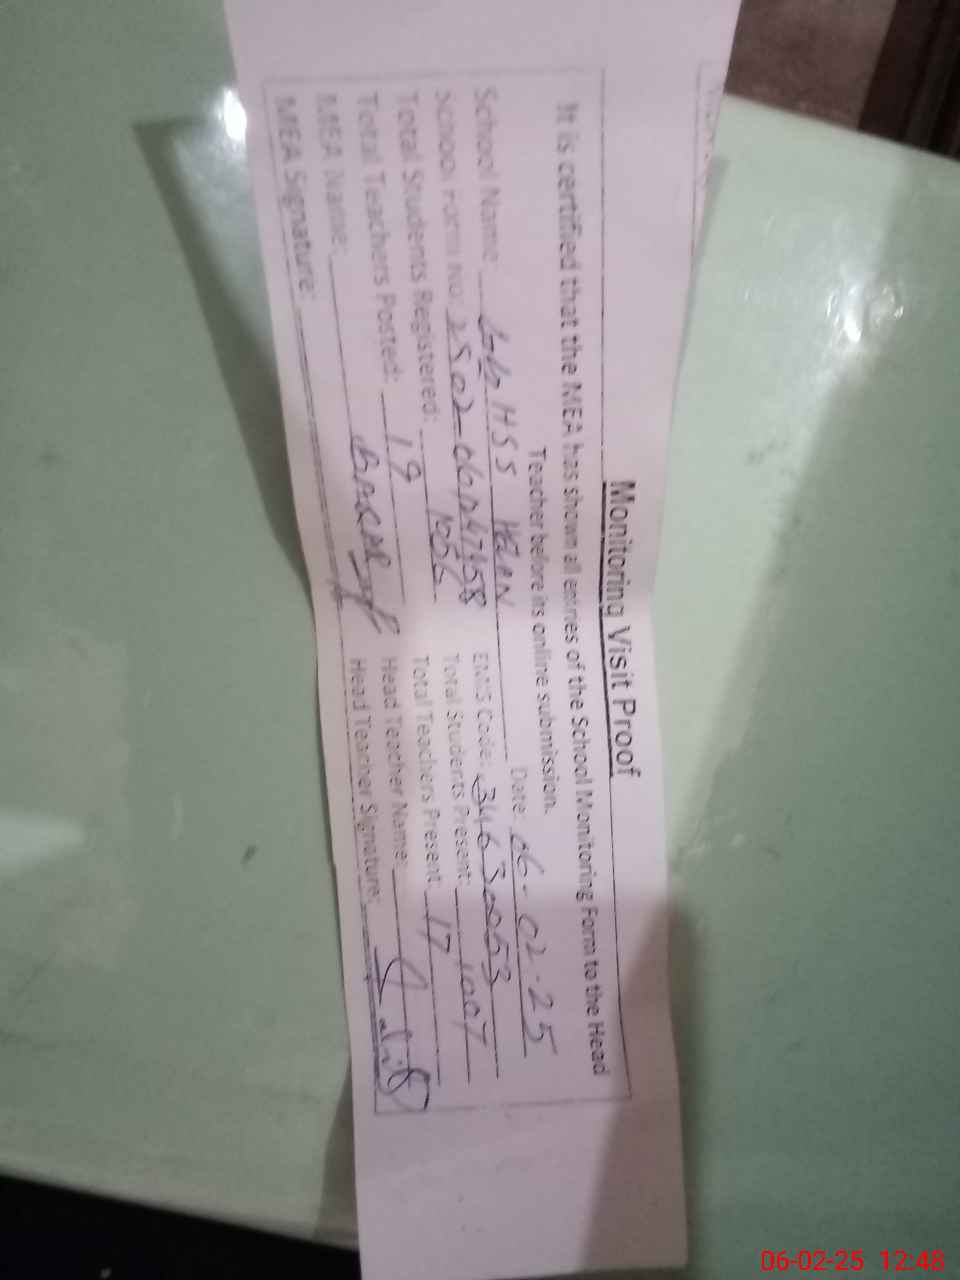 Monitoring Visit Proof
It is certified that the MEA has shown all entries of the School Monitoring Form to the Head
Teacher before its online submission.
Date: 06-02-25
School Name: GGHSS
School Form No: EMIS Code: 34630053
Total Students Registered: 1056 Total Students Present: 1007
Total Teachers Posted: 19 Total Teachers Present: 17
MEA Name: Head Teacher Name:
MEA Signature: Head Teacher Signature:
06-02-25 12:48